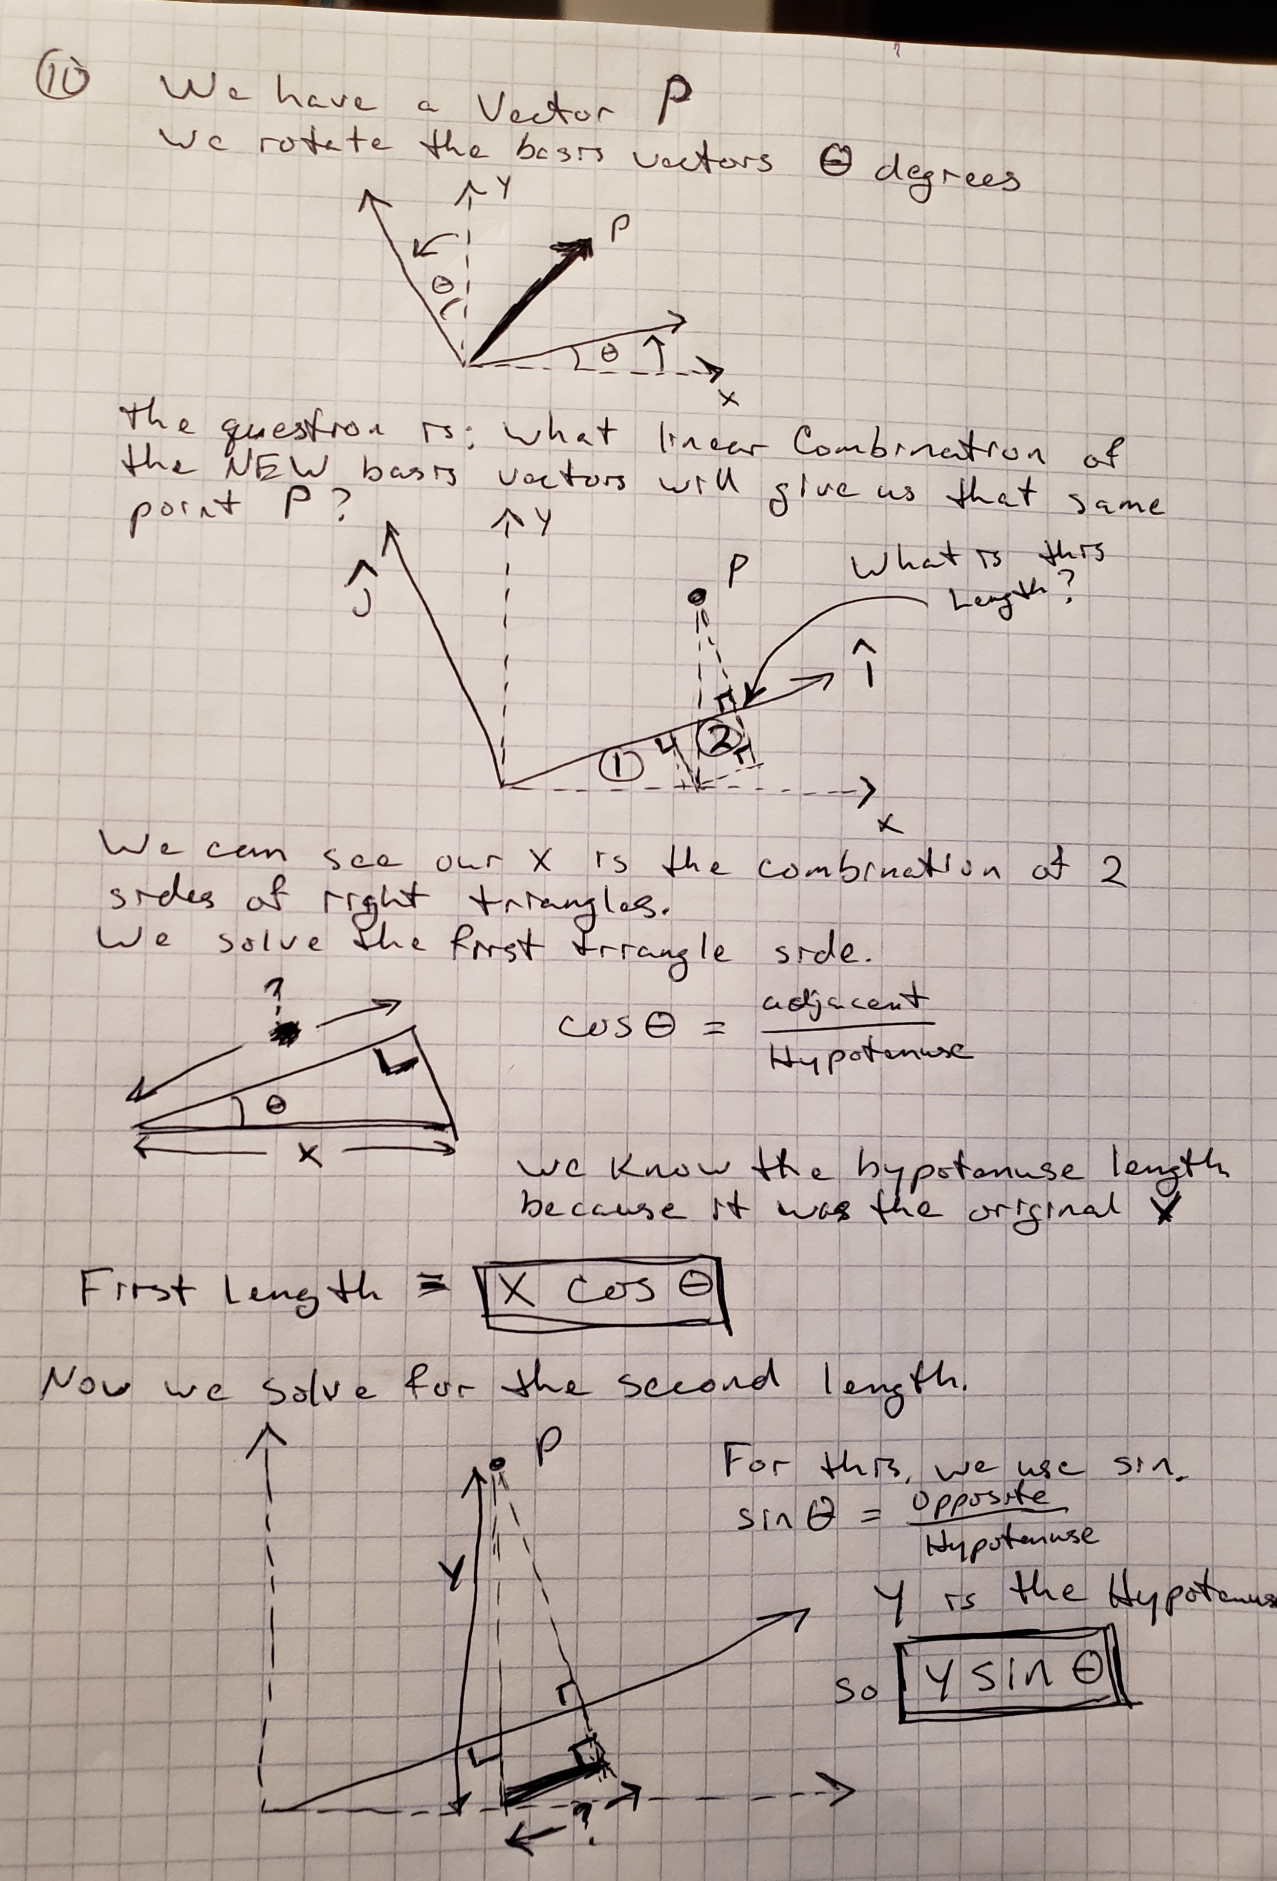 10 We have a Vector P
We rotate the basis vectors θ degrees
Y
P
θ
θ
X
the question is: what linear Combination of
the NEW basis vectors will give us that same
point P?
Y
ĵ
P
What is this
Length?
î
1
2
X
We can see our X is the combination of 2
sides of right triangles.
We solve the first triangle side.
?
cos θ = adjacent
Hypotenuse
θ
X
we know the hypotenuse length
because it was the original X
First Length = X cos θ
Now we solve for the second length.
P
For this, we use sin.
sin θ = opposite
Hypotenuse
Y
Y is the Hypotenuse
so Y sin θ
?